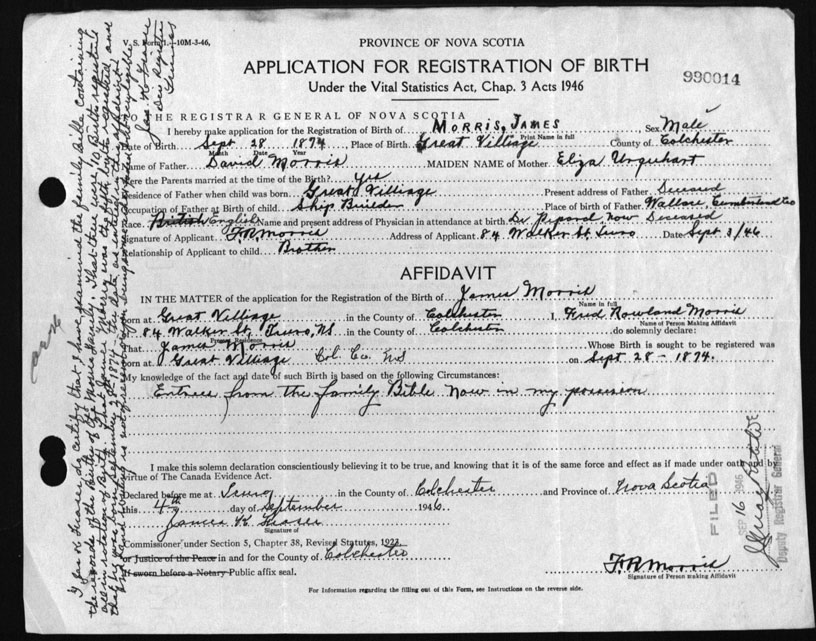 V. S. Form 1.—10M-3-46.
PROVINCE OF NOVA SCOTIA
APPLICATION FOR REGISTRATION OF BIRTH
Under the Vital Statistics Act, Chap. 3 Acts 1946
990014
TO THE REGISTRAR GENERAL OF NOVA SCOTIA
I hereby make application for the Registration of Birth of MORRIS, JAMES Sex Male
Print Name in full
Date of Birth Sept 28 1874, Place of Birth Great Village County of Colchester
Month Date Year
Name of Father David Morris MAIDEN NAME of Mother Eliza Urquhart
Were the Parents married at the time of the Birth? Yes
Residence of Father when child was born Great Village Present address of Father Deceased
Occupation of Father at Birth of child Ship Builder Place of birth of Father Wallace, Cumberland Co
Race British English Name and present address of Physician in attendance at birth Dr Now Deceased
Signature of Applicant F.R. Morris Address of Applicant 84 Walker St Truro Date Sept 3/46
Relationship of Applicant to child Brother
AFFIDAVIT
IN THE MATTER of the application for the Registration of Birth of James Morris
Name in full
born at Great Village in the County of Colchester I, Fred Rowland Morris
Name of Person Making Affidavit
84 Walker St, Truro, NS in the County of Colchester do solemnly declare:
Present Residence
That James Morris Whose Birth is sought to be registered was
born at Great Village Col. Co. NS on Sept 28 - 1874.
My knowledge of the fact and date of such Birth is based on the following Circumstances:
Entries from the family Bible now in my possession
I make this solemn declaration conscientiously believing it to be true, and knowing that it is of the same force and effect as if made under oath and by
virtue of The Canada Evidence Act.
Declared before me at Truro in the County of Colchester and Province of Nova Scotia
this 4th day of September 1946
James K. Fraser
Signature of
Commissioner under Section 5, Chapter 38, Revised Statutes, 1923.
or Justice of the Peace in and for the County of Colchester
If sworn before a Notary Public affix seal.
F.R. Morris
Signature of Person making Affidavit
For Information regarding the filling out of this Form, see Instructions on the reverse side.
FILED
SEP 16 1946
Deputy Registrar General
I Jas K. Fraser do certify that I have examined the family Bible containing
the records of the Births of the Morris family. That there were 10 Births registered
all in rotation of Birth
Jas. K. Fraser
Div Registrar
Truro NS